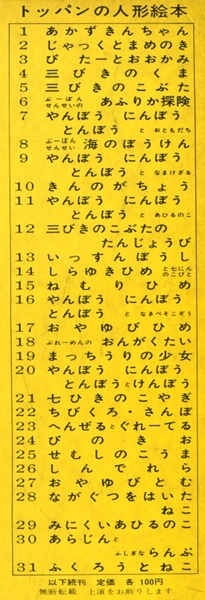 トッパンの人形絵本
1 あかずきんちゃん
2 じゃっくとまめのき
3 ぴーたーとおおかみ
4 三びきのくま
5 三びきのこぶた
6 ぶーぽんせんせいの あふりか探険
7 やんぼう にんぼう
とんぼう と おともだち
8 ぶーぽんせんせい 海のぼうけん
9 やんぼう にんぼう
とんぼう と なまけざる
10 きんのがちょう
11 やんぼう にんぼう
とんぼう と あひるのこ
12 三びきのこぶたの
たんじょうび
13 いっすんぼうし
14 しらゆきひめ と七にんのこびと
15 ねむりひめ
16 やんぼう にんぼう
とんぼう と なきべそこぞう
17 おやゆびひめ
18 ぶれーめんの おんがくたい
19 まっちうりの少女
20 やんぼう にんぼう
とんぼうとけんぼう
21 七ひきのこやぎ
22 ちびくろ・さんぼ
23 へんぜるとぐれーてる
24 ぴのきお
25 せむしのこうま
26 しんでれら
27 おやゆびとむ
28 ながぐつをはいた
ねこ
29 みにくいあひるのこ
30 あらじんと
ふしぎならんぷ
31 ふくろうとねこ
以下続刊 定価 各100円
無断転載 上演をお断りします